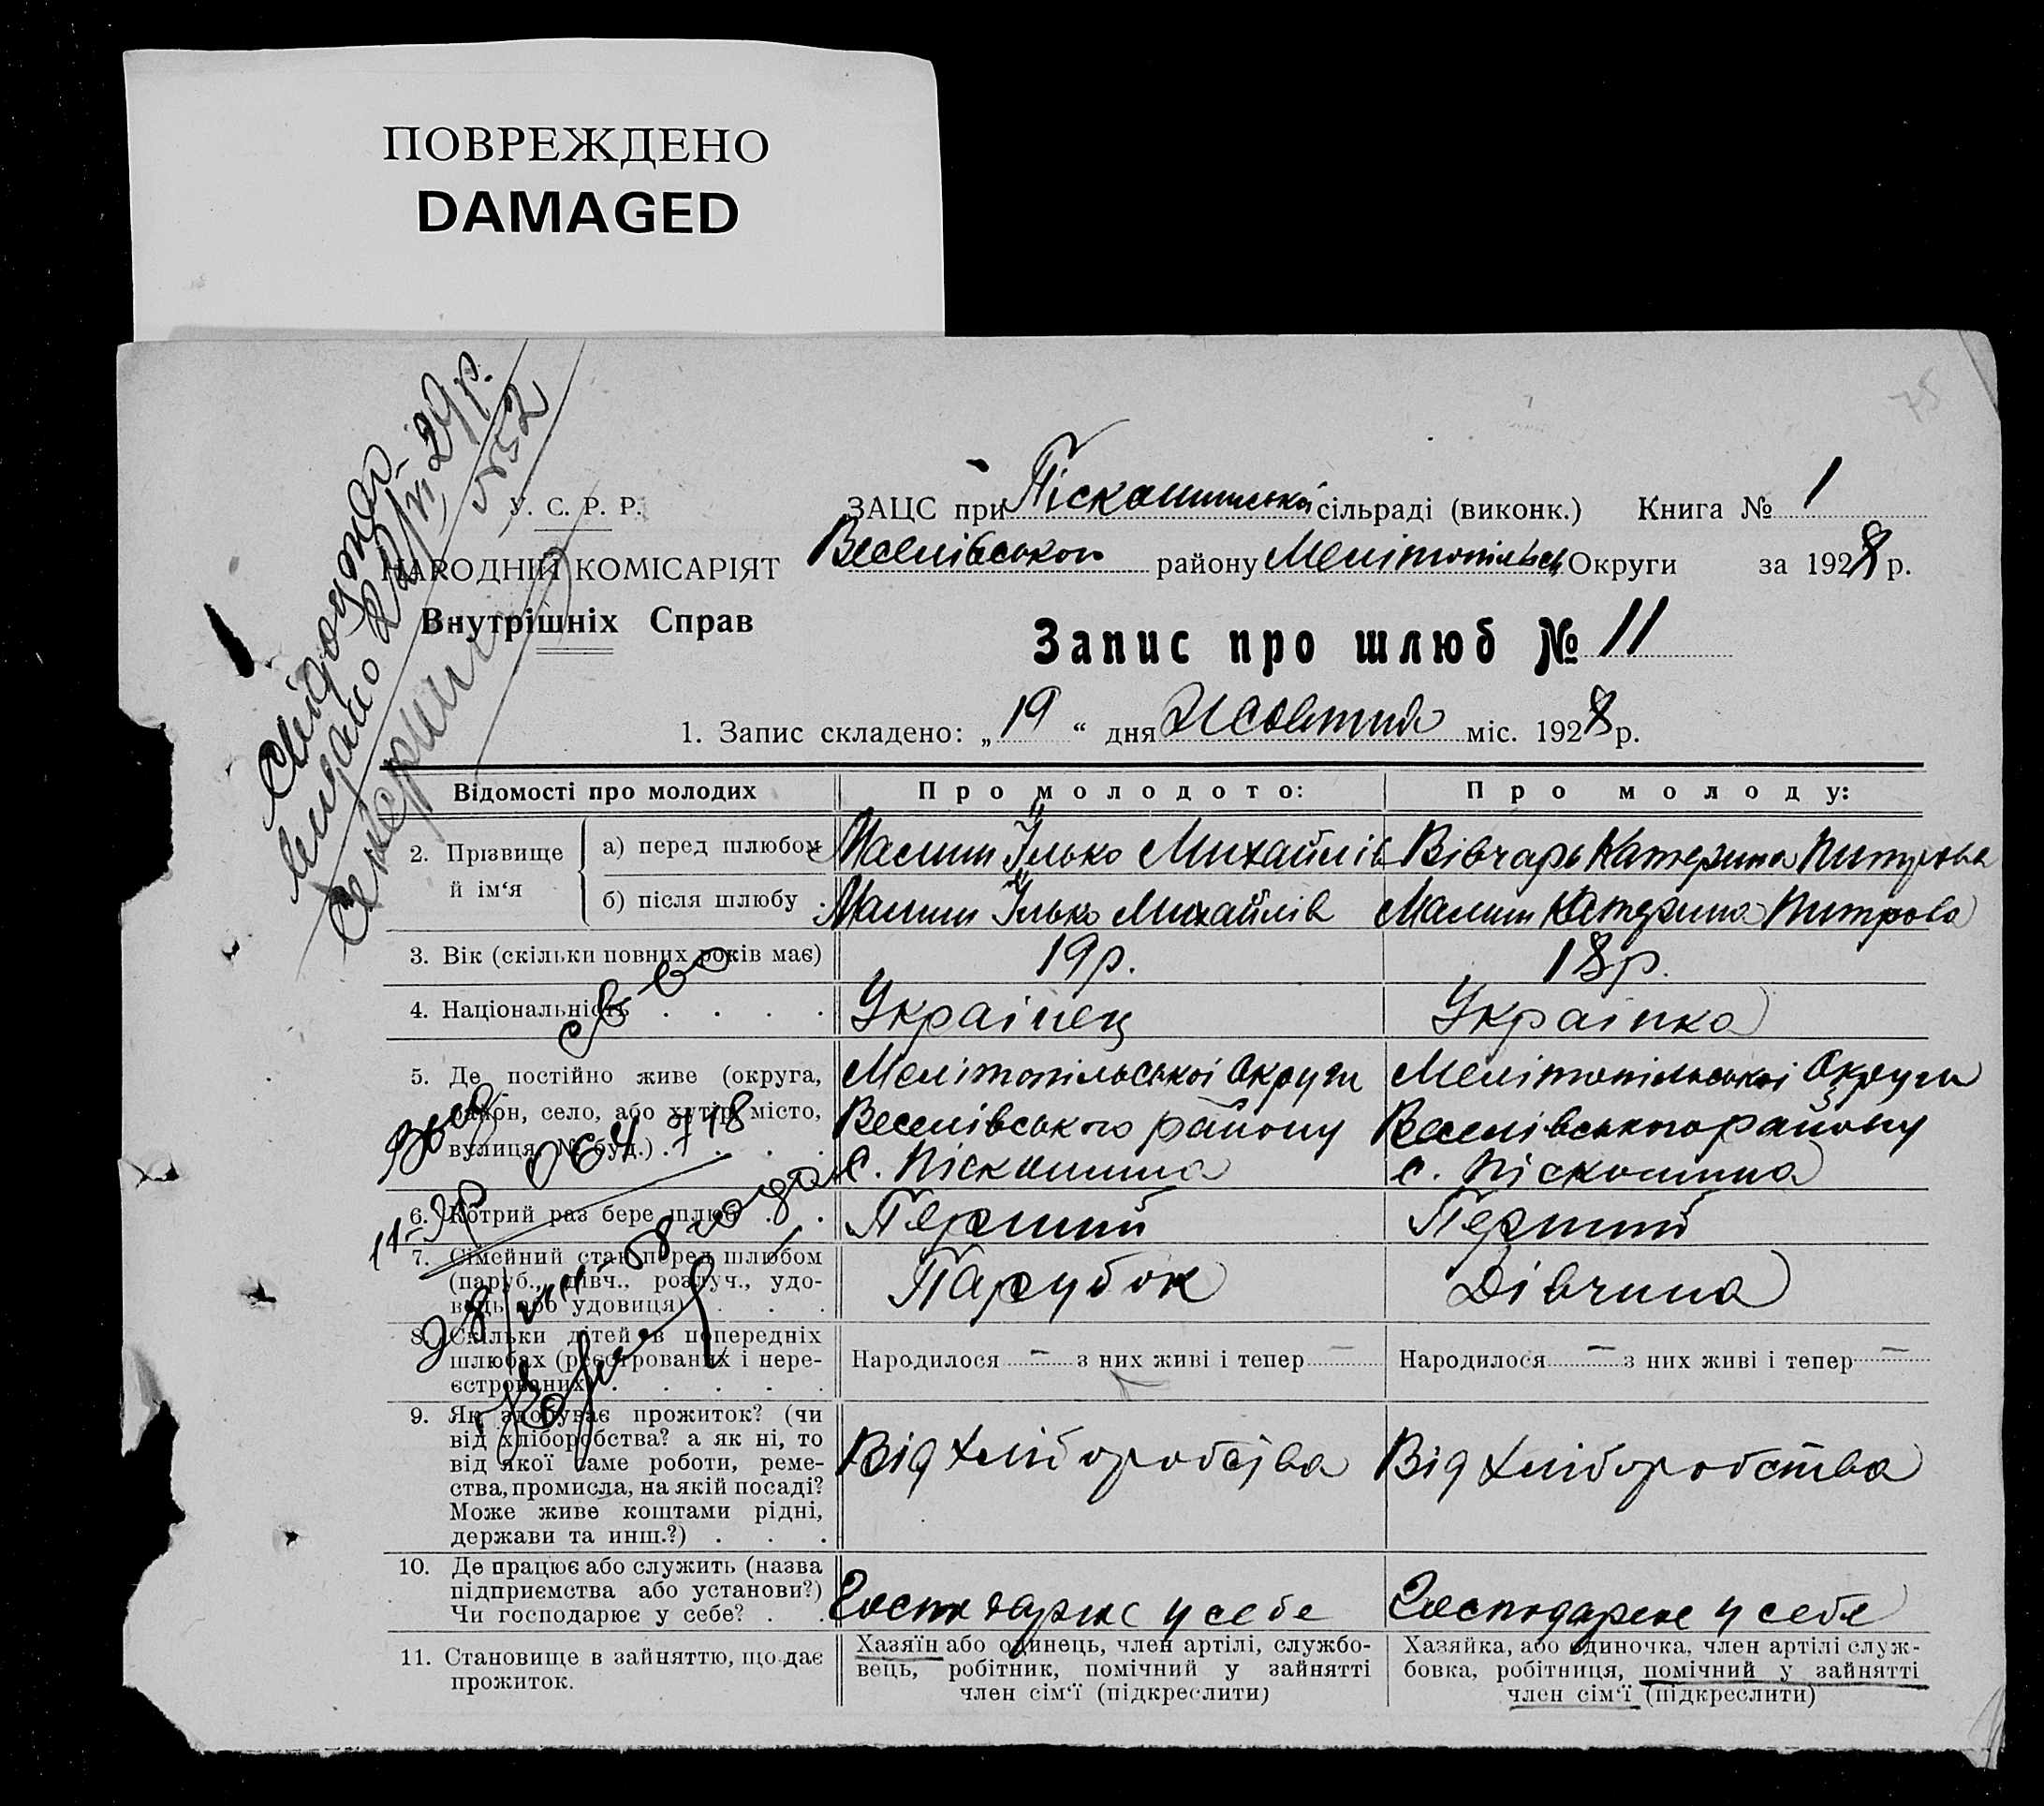 ПОВРЕЖДЕНО
DAMAGED
75
22/VI 29 р.
№ 52
У. С. Р. Р.
НАРОДНІЙ КОМІСАРІЯТ
Внутрішніх Справ
ЗАЦС при Піскошинській сільраді (виконк.) Книга № 1
Веселівського району Мелітопільськ Округи за 1928 р.
Запис про шлюб № 11
1. Запис складено: „19“ дня Жовтня міс. 1928 р.
Відомості про молодих
Про молодого:
Про молоду:
2. Прізвище й ім‘я
а) перед шлюбом
Малиш Ілько Михайлів
Вівчарь Катерина Питрова
б) після шлюбу
Малиш Ілько Михайлів
Малиш Катерина Питрова
3. Вік (скільки повних років має)
19 р.
18 р.
4. Національність
Українец
Українка
5. Де постійно живе (округа,
район, село, або хутір, місто,
вулиця, № буд.)
Мелітопільської Округи
Веселівського району
с. Піскошина
Мелітопільської Округи
Веселівського району
с. Піскошина
6. Котрий раз бере шлюб
Перший
Перший
7. Сімейний стан перед шлюбом
(паруб., дівч., розлуч., удо-
вець або удовиця)
Парубок
Дівчина
8. Скільки дітей в попередніх
шлюбах (реєстрованих і нере-
єстрованих)
Народилося — з них живі і тепер —
Народилося — з них живі і тепер —
9. Як здобуває прожиток? (чи
від хліборобства? а як ні, то
від якої саме роботи, реме-
ства, промисла, на якій посаді?
Може живе коштами рідні,
держави та инш.?)
Від хліборобства
Від хліборобства
10. Де працює або служить (назва
підприємства або установи?)
Чи господарює у себе?
Господарює у себе
Господарює у себе
11. Становище в зайняттю, що дає
прожиток.
Хазяїн або одинець, член артілі, службо-
вець, робітник, помічний у зайнятті
член сім‘ї (підкреслити)
Хазяйка, або одиночка, член артілі служ-
бовка, робітниця, помічний у зайнятті
член сім‘ї (підкреслити)